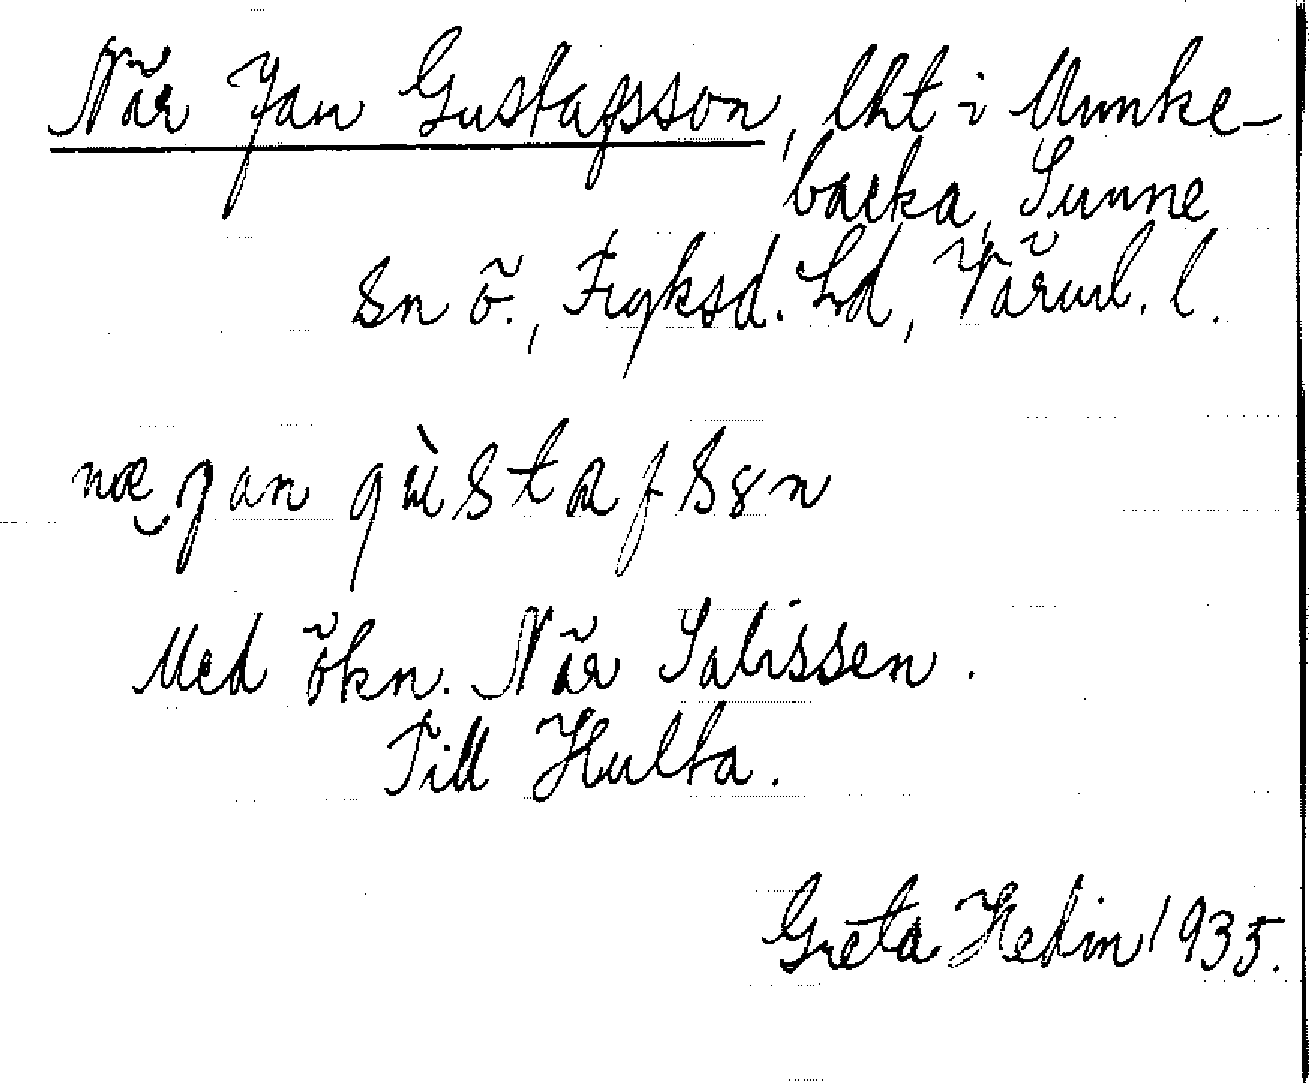 När Jan Gustafsson, lht i Munke-
backa, Sunne
sn ö., Fryksd. hd, Värml. l.
næ jan gùstafsɤn
Med ökn. När Salissen.
Till Hulta.
Greta Hedin 1935.